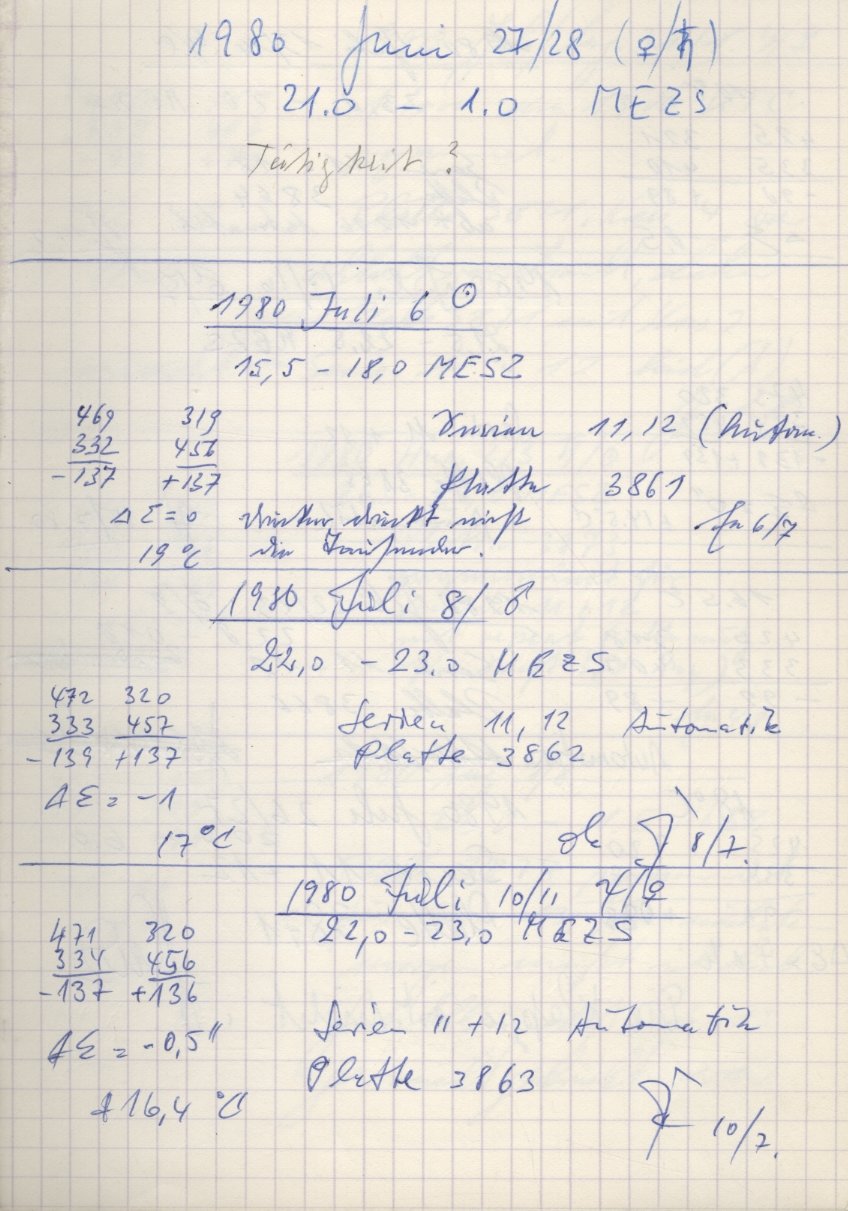 1980 Juni 27/28 (♀/♄)
21.0 – 1.0 MEZS
Tätigkeit?
1980 Juli 6 ☉
15,5 – 18,0 MESZ
469 319
332 456
-137 +137
Serien 11, 12 (Autom.)
Platte 3861
Δ Σ = 0 Drucker druckt nicht
6/7
19 °C die Tausender.
1980 Juli 8/ ♂
22,0 – 23.0 MEZS
472 320
333 457
-139 +137
Serien 11, 12 Automatik
Platte 3862
Δ Σ = -1
17 °C
ok 8/7.
1980 Juli 10/11 ♃/♀
22,0 – 23,0 MEZS
471 320
334 456
-137 +136
Serien 11 + 12 Automatik
Δ Σ = -0,5"
Platte 3863
+16,4 °C
10/7.